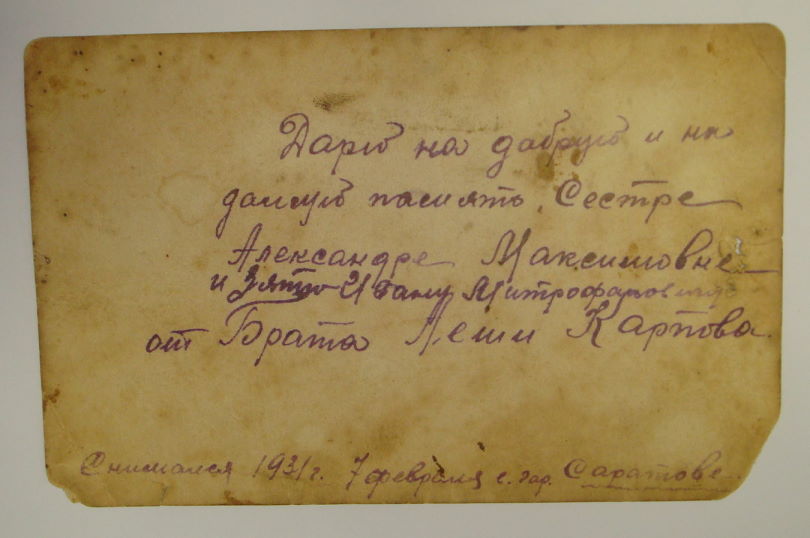 Дарю на добрую и на
долгую память Сестре
Александре Максимовне
и Зятю Ивану Митрофановичу
от Брата Леши Карпова.
Снимался 1931 г. 7 февраля с. гор. Саратове.